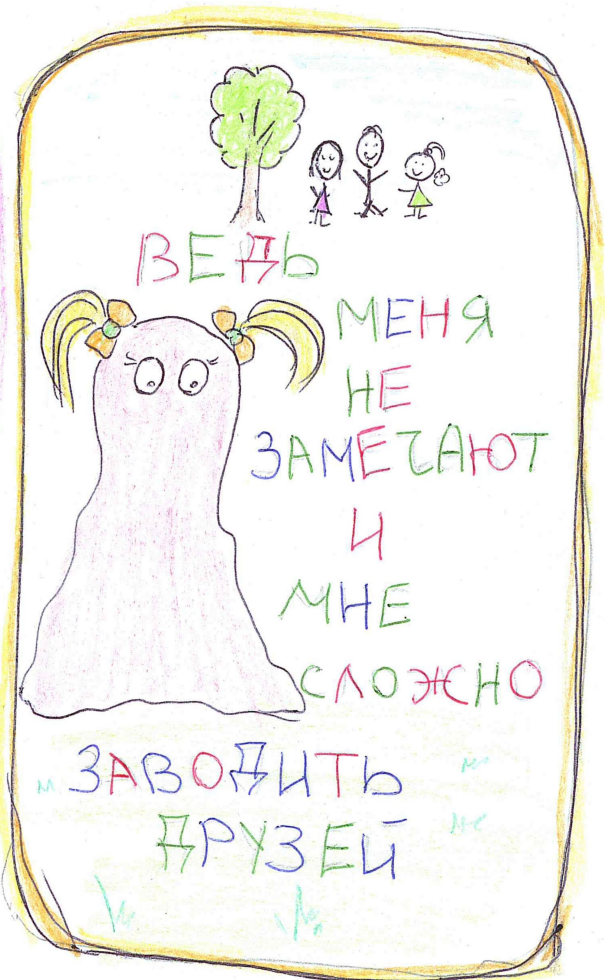 ВЕДЬ
МЕНЯ
НЕ
ЗАМЕЧАЮТ
И
МНЕ
СЛОЖНО
ЗАВОДИТЬ
ДРУЗЕЙ